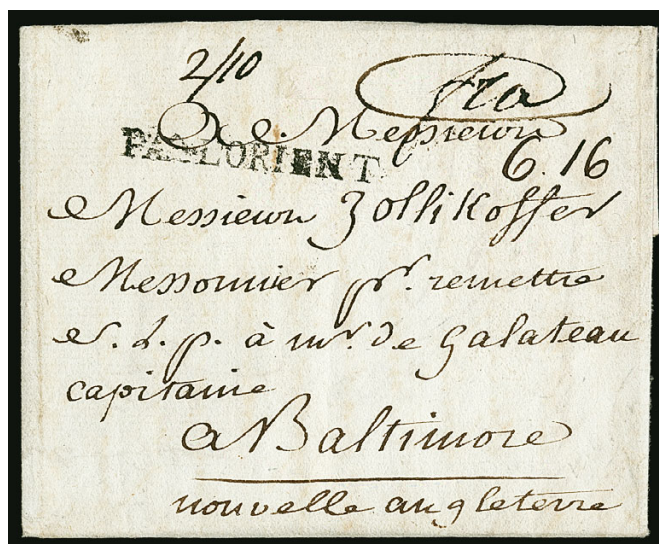 2/10
fco
A Messieurs
P.P.L'ORIENT
6.16
Messieurs Zollikoffer
Messonnier pr. remettre
S. L. p. à mr. de galateau
capitaine
a Baltimore
nouvelle angleterre